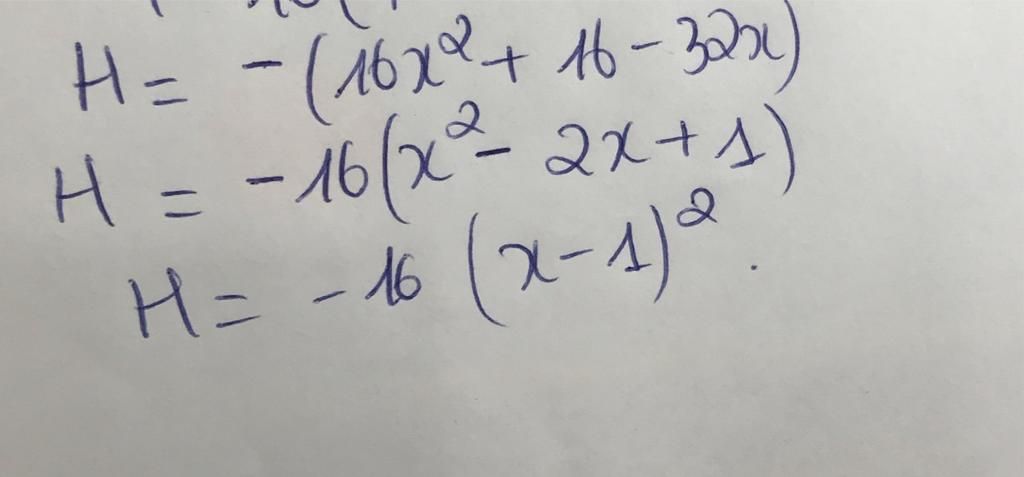 H = -(16x² + 16 - 32x)
H = -16(x² - 2x + 1)
H = -16 (x - 1)².